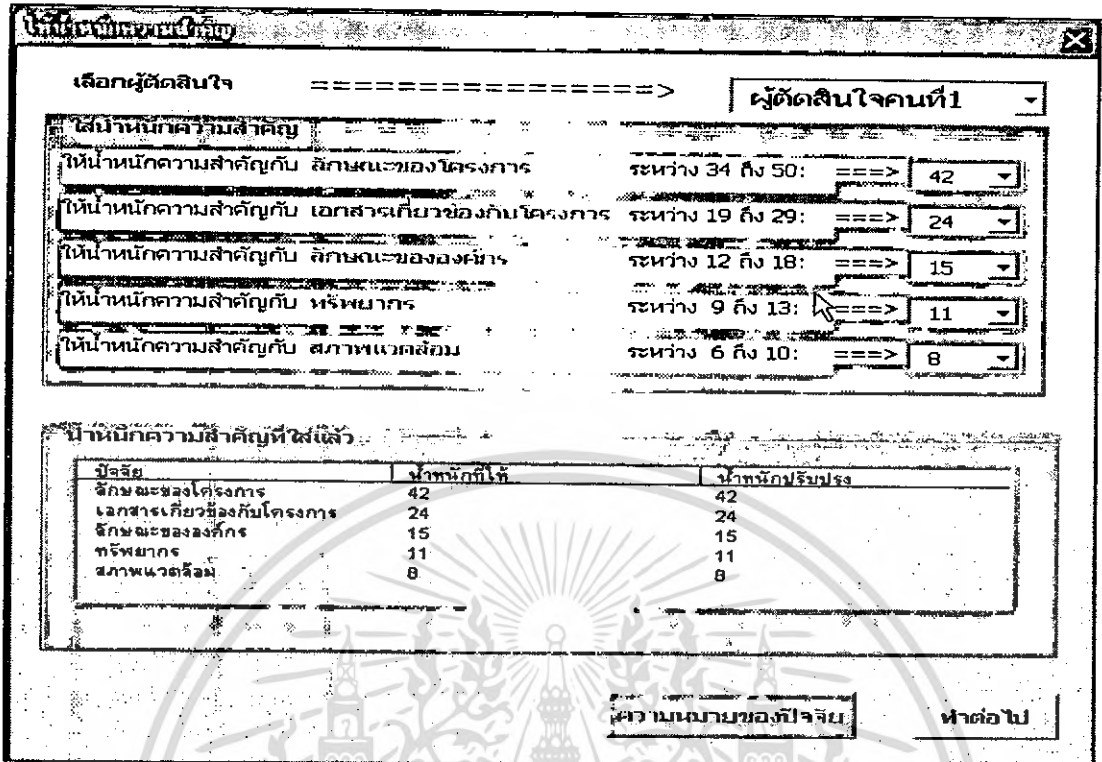 ให้น้ำหนักความสำคัญ
เลือกผู้ตัดสินใจ ================> ผู้ตัดสินใจคนที่1
ใส่น้ำหนักความสำคัญ
ให้น้ำหนักความสำคัญกับ ลักษณะของโครงการ ระหว่าง 34 ถึง 50: ===> 42
ให้น้ำหนักความสำคัญกับ เอกสารเกี่ยวข้องกับโครงการ ระหว่าง 19 ถึง 29: ===> 24
ให้น้ำหนักความสำคัญกับ ลักษณะขององค์กร ระหว่าง 12 ถึง 18: ===> 15
ให้น้ำหนักความสำคัญกับ ทรัพยากร ระหว่าง 9 ถึง 13: ===> 11
ให้น้ำหนักความสำคัญกับ สภาพแวดล้อม ระหว่าง 6 ถึง 10: ===> 8
น้ำหนักความสำคัญที่ใส่แล้ว
ปัจจัย น้ำหนักที่ให้ น้ำหนักปรับปรุง
ลักษณะของโครงการ 42 42
เอกสารเกี่ยวข้องกับโครงการ 24 24
ลักษณะขององค์กร 15 15
ทรัพยากร 11 11
สภาพแวดล้อม 8 8
ความหมายของปัจจัย ทำต่อไป